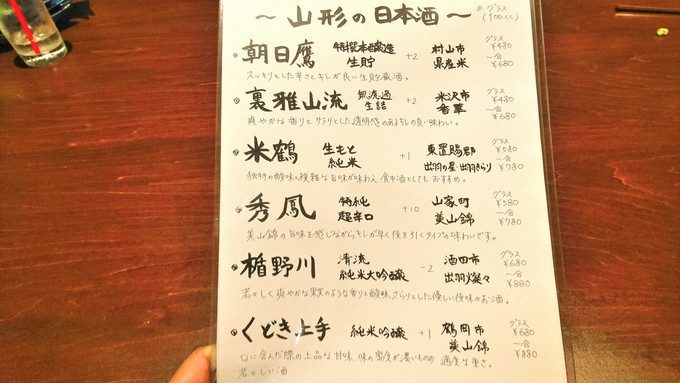 ～ 山形の日本酒 ～
※グラス
(100cc)
朝日鷹 特撰本醸造 +2 村山市 グラス ¥480
生貯 県産米 一合 ¥680
スッキリとした辛さとキレが良い生貯蔵酒。
裏雅山流 無濾過 +2 米沢市 グラス ¥480
生詰 香華 一合 ¥680
爽やかな香りとサラリとした透明感のあるキレの良い味わい。
米鶴 生もと +1 東置賜郡 グラス ¥580
純米 出羽の里・出羽きらり 一合 ¥780
独特の酸味と複雑な旨味が味わえ、食中酒としてもおすすめ。
秀鳳 特純 +10 山家町 グラス ¥580
超辛口 美山錦 一合 ¥780
美山錦の旨味を感じながらキレが早く後を引くタイプの味わいです。
楯野川 清流 -2 酒田市 グラス ¥680
純米大吟醸 出羽燦々 一合 ¥880
若々しく爽やかな果実のような香りと酸味、さらりとした優しい後味のお酒。
くどき上手 純米吟醸 +1 鶴岡市 グラス ¥680
美山錦 一合 ¥880
口に含んだ際の上品な甘味、味の密度が濃いものの適度な重さ。
若々しい酒